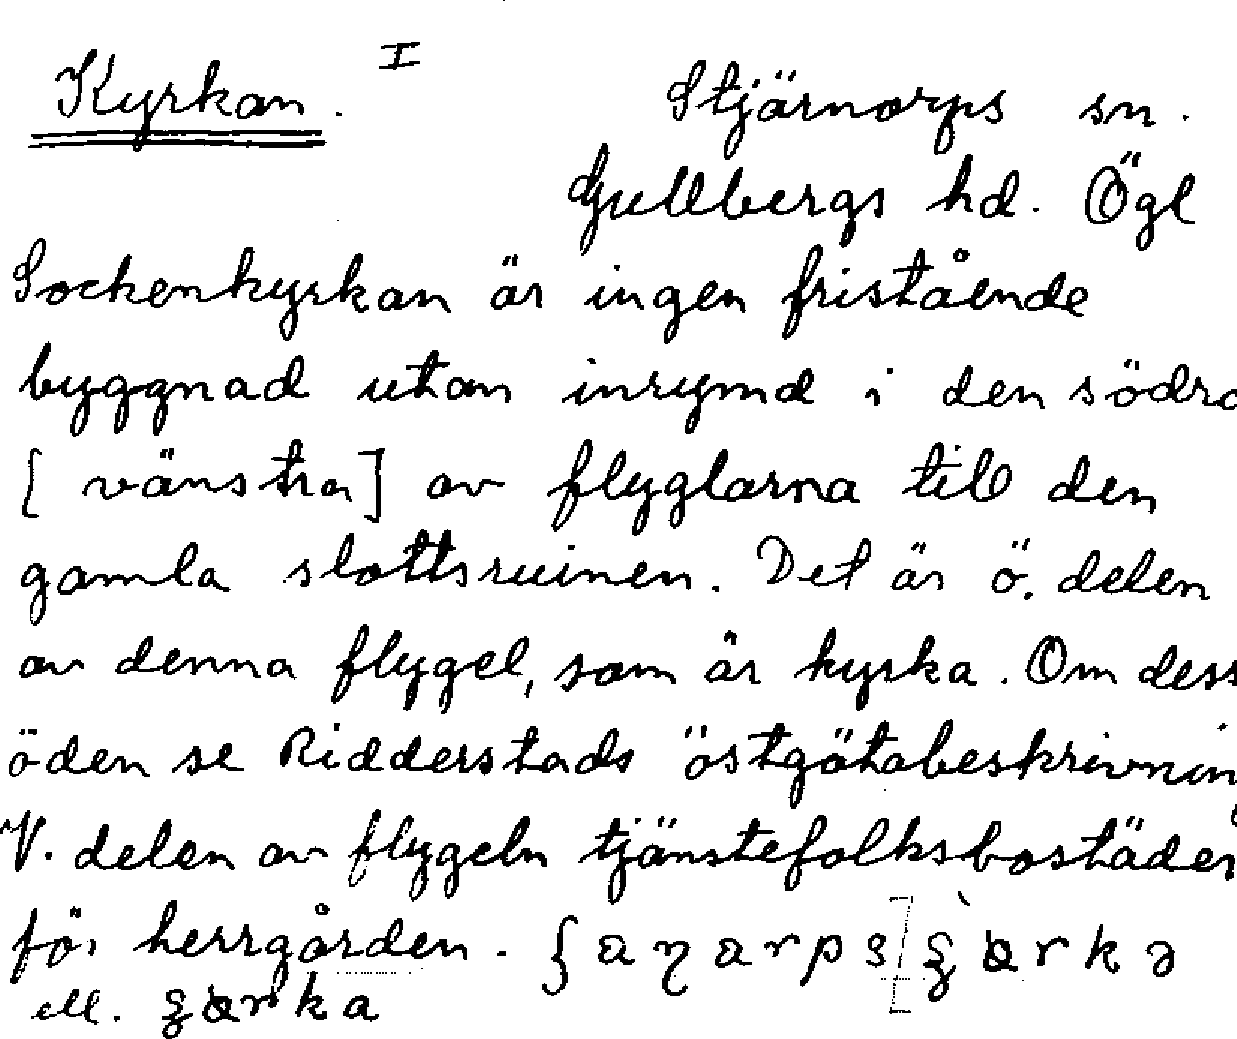 Kyrkan. I Stjärnorps sn.
Gullbergs hd. Ögl
Sockenkyrkan är ingen fristående
byggnad utan inrymd i den södra
[vänstra] av flyglarna till den
gamla slottsruinen. Det är ö. delen
av denna flygel, som är kyrka. Om dess
öden se Ridderstads östgötabeskrivnin
V. delen av flygeln tjänstefolksbostäder
för herrgården.
ell.